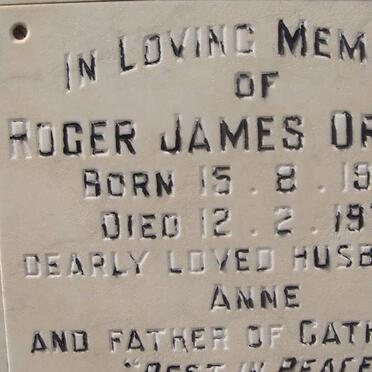 IN LOVING MEM
OF
ROGER JAMES OR
BORN 15.8.19
DIED 12.2.19
DEARLY LOVED HUSB
ANNE
AND FATHER OF CATH
"REST IN PEACE